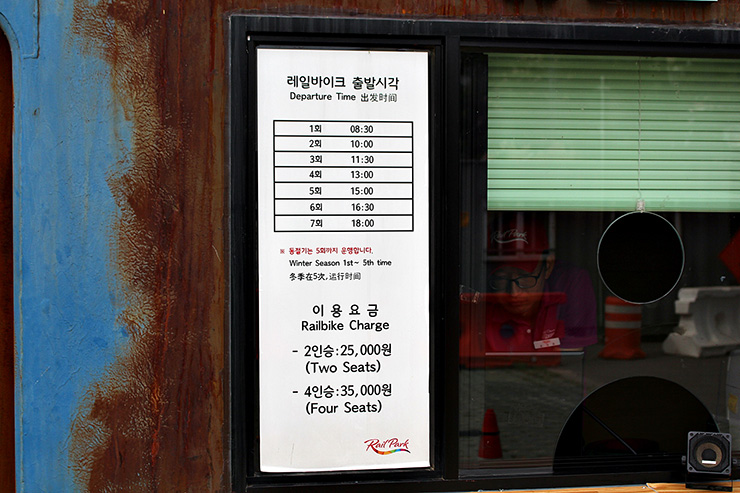 레일바이크 출발시각
Departure Time 出发时间
1회 08:30
2회 10:00
3회 11:30
4회 13:00
5회 15:00
6회 16:30
7회 18:00
※ 동절기는 5회까지 운행합니다.
Winter Season 1st~ 5th time
冬季在5次,运行时间
이 용 요 금
Railbike Charge
- 2인승:25,000원
(Two Seats)
- 4인승:35,000원
(Four Seats)
Rail Park
Rail Park